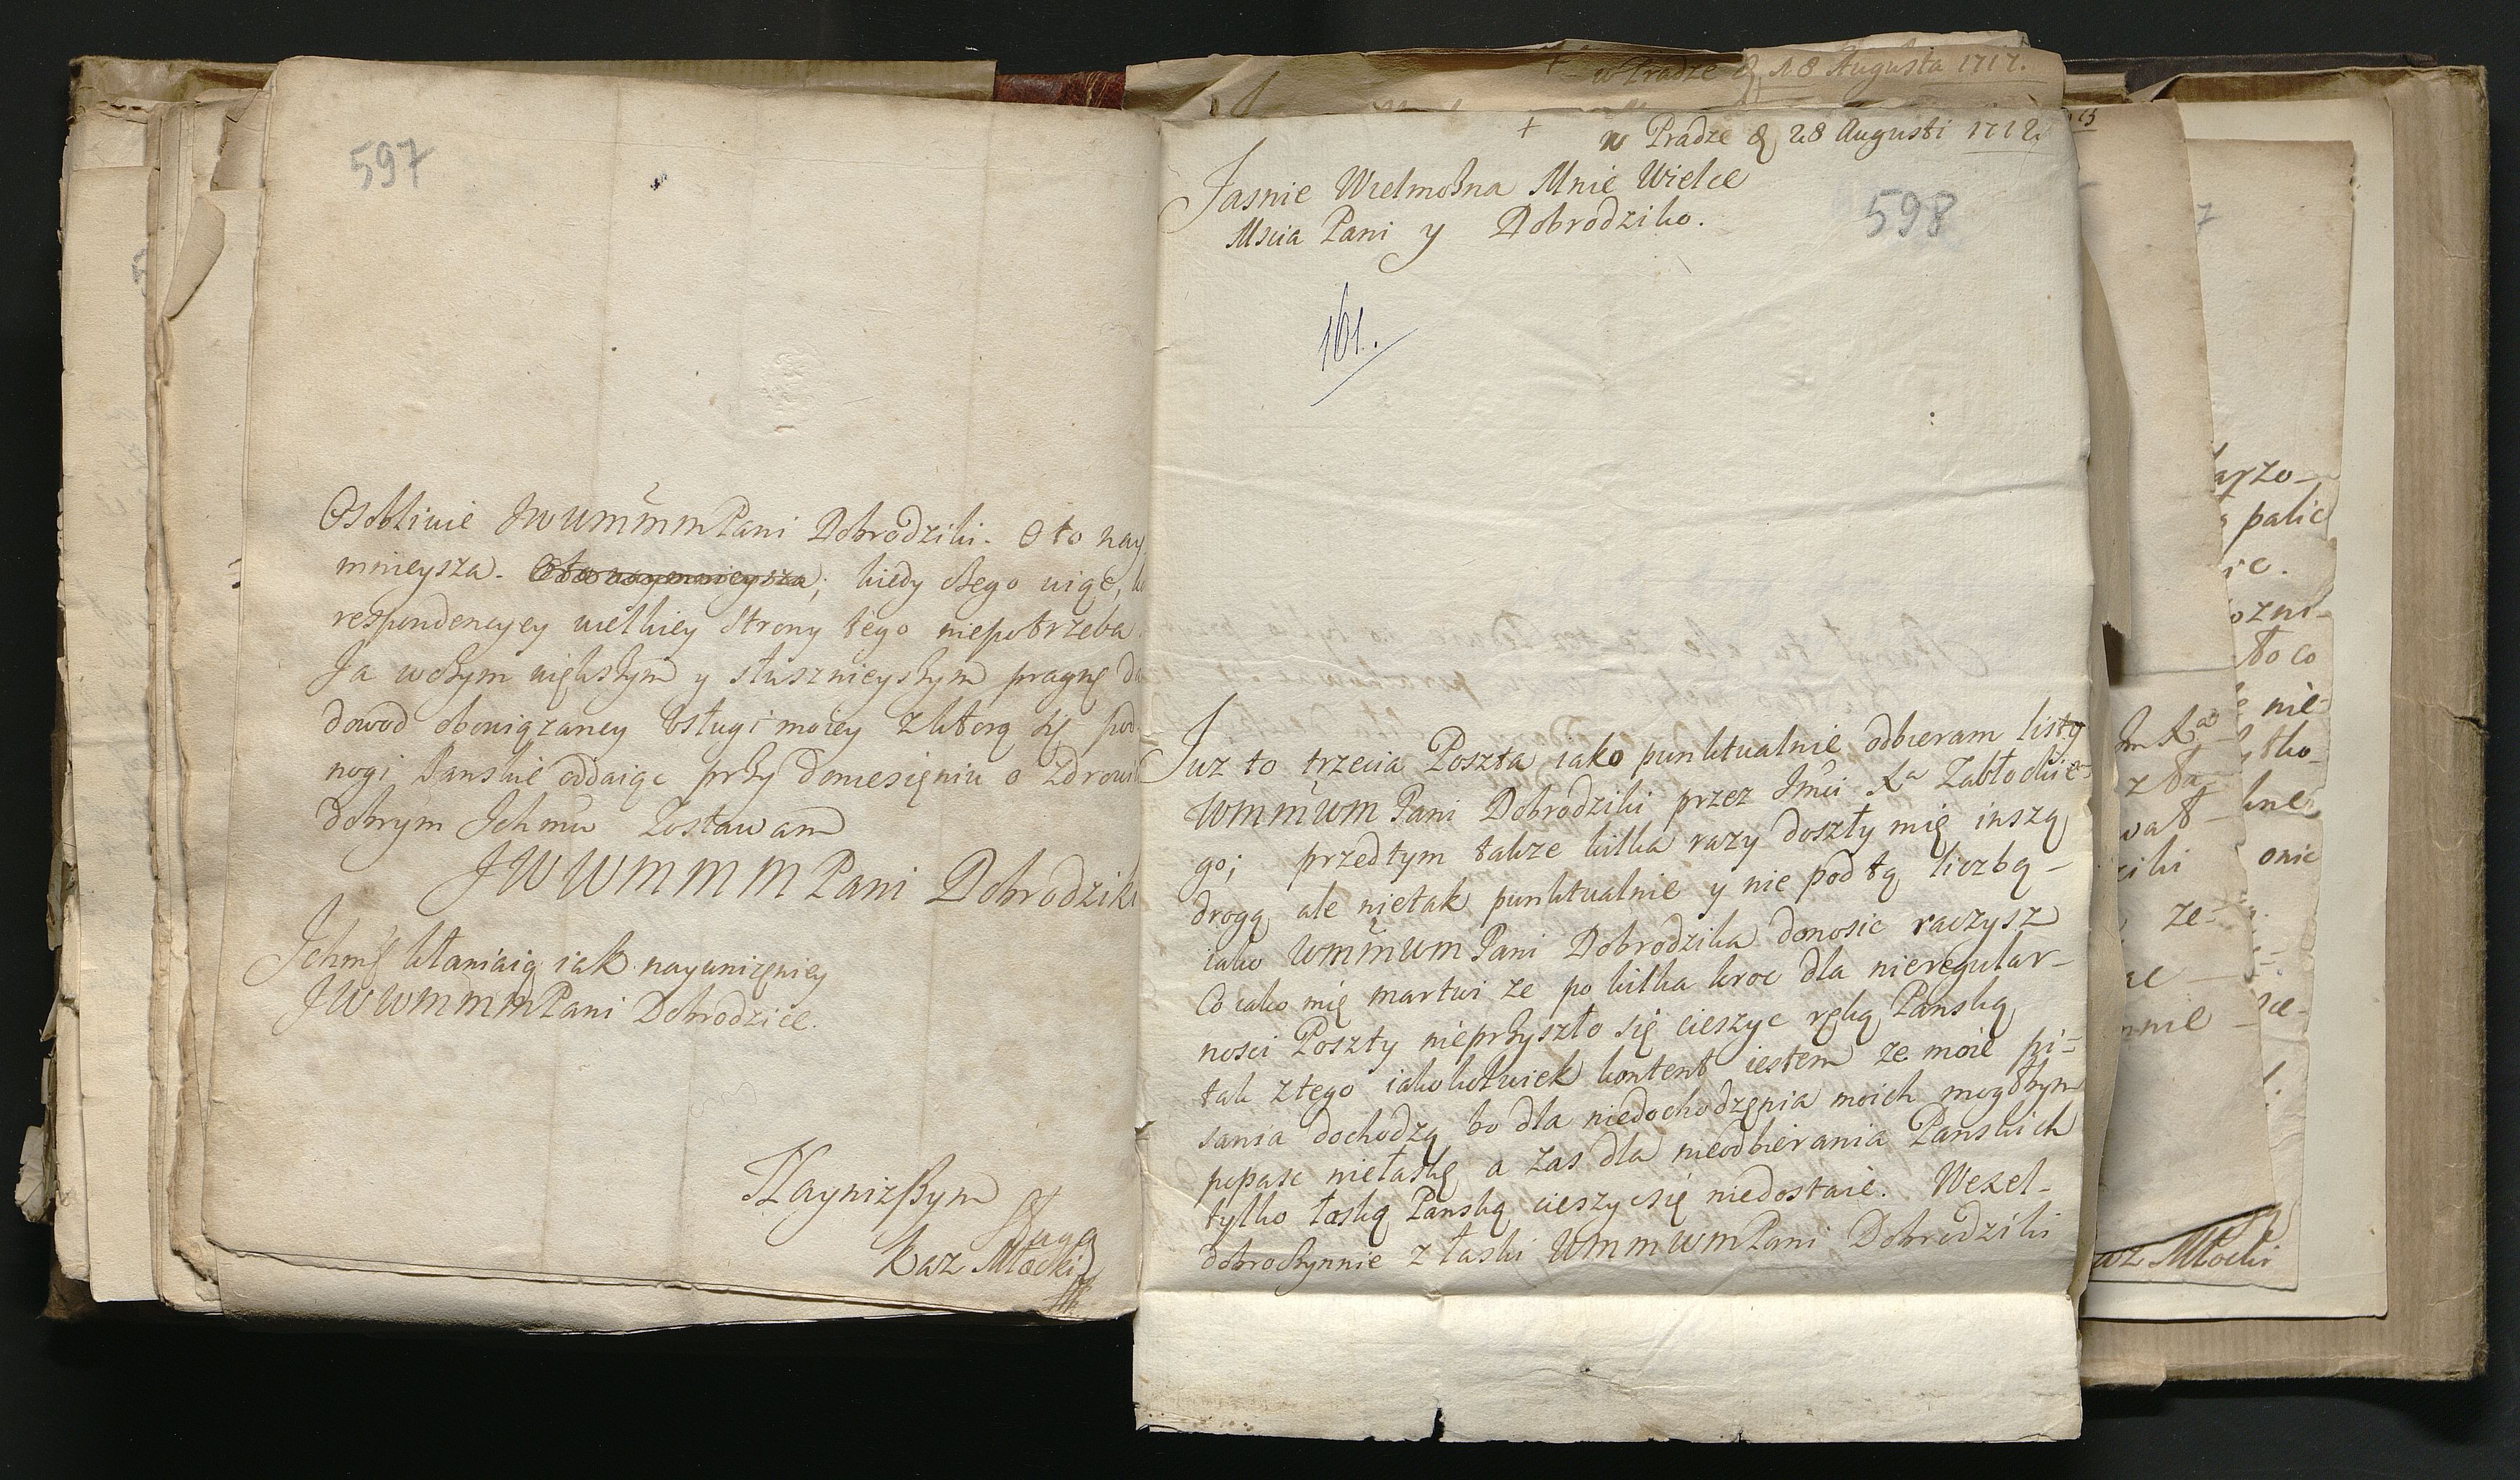 597
Osobliwie JWWMMM Pani Dobrodziki. O to nay
mnieysza. Oto naymnieysza; kiedy czego więc,
respondencyey wielkiey strony tego niepotrzeba
Ja w czym większym y słusznieyszym pragnę
dowod obowiązaney usługi moiey z ktorą się pod
nogi Panskie oddaiąc przy doniesięniu o zdrowiu
dobrym Ich mw zostawam
JWWMMM Pani Dobrodziki
Ichmę kłaniaią iak nayuniżęniey
JWWMMM Pani Dobrodzice.
Nayniższym
Sługą
Kaz Młocki
w Pradze d 18 Augusta 1717.
+ w Pradze d 28 Augusti 1717
Jasnie Wielmożna Mnie Wielce
Mscia Pani y Dobrodziko.
598
161.
Juz to trzecia Poszta iako punktualnie odbieram listy
WMMWM Pani Dobrodziki przez Jmci Xa Zabłockie-
go; przedtym także kilka razy doszły mię inszą
drogą ale nietak punktualnie y nie pod tą liczbą -
iako WMMWM Pani Dobrodzika donosic raczysz
Co iako mię martwi ze po kilka kroc dla nieregular-
nosci Poszty nieprzyszło się cieszyc ręką Panską
tak z tego iakokolwiek kontent iestem ze moie pi=
sania dochodzą bo dla niedochodzęnia moich mogłbym
popasc niełaskę a zas dla nieodbierania Panskich
tylko łaską Panską cieszyc się niedostaie. Wexel-
dobroczynnie z łaski WMMWM Pani Dobrodziki
arzo-
palic
ic.
ozni-
to co
nie-
tko-
onie
Xa
z ta-
wat-
ziki
ze-
nnie
az Młocki